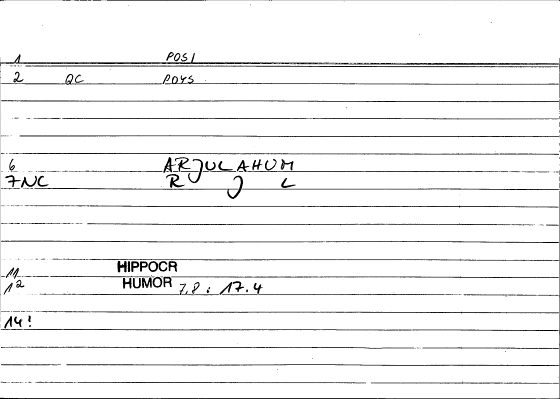 1 POSI
2 QC POYS
6 ARJULAHUM
7NC R J L
11 HIPPOCR
12 HUMOR 7,8 : 17.4
14!